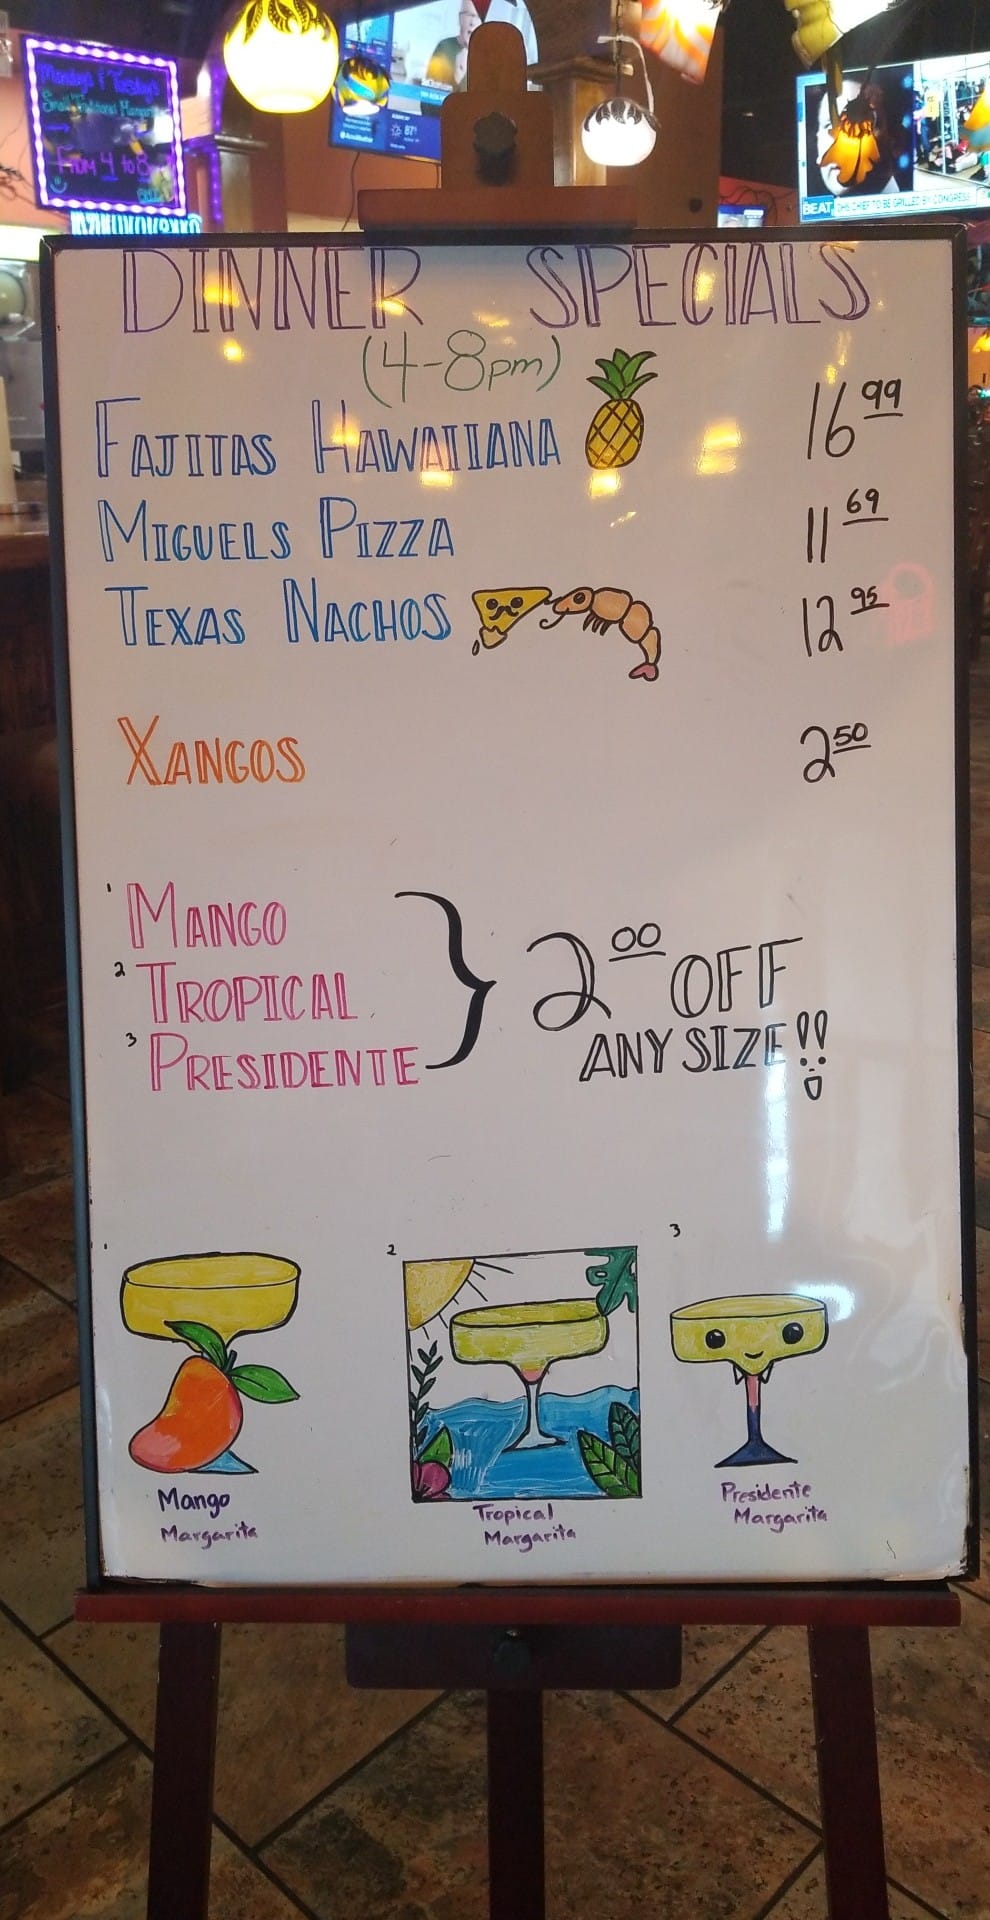 Mondays & Tuesday's
From 4 to 8
87°
BEAT
DHS CHIEF TO BE GRILLED BY CONGRESS
DINNER SPECIALS
(4-8pm)
FAJITAS HAWAIIANA 16 99
MIGUELS PIZZA 11 69
TEXAS NACHOS 12 95
XANGOS 2 50
1 MANGO
2 TROPICAL
3 PRESIDENTE
2 00 OFF
ANY SIZE!!
1
2
3
Mango
Margarita
Tropical
Margarita
Presidente
Margarita